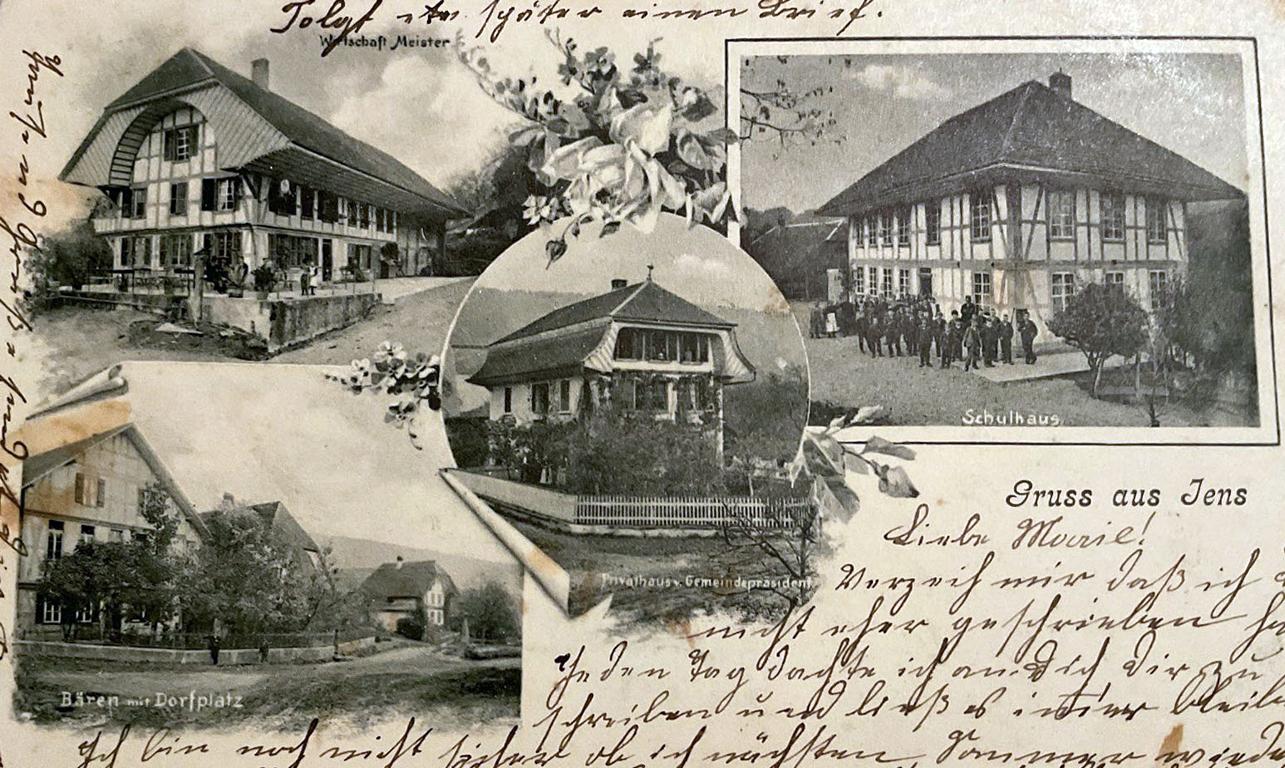 Folgt etw. später einen Brief.
Wirtschaft Meister
Schulhaus
Privathaus v. Gemeindepräsident
Bären mit Dorfplatz
Gruss aus Jens
Liebe Marie!
Verzeih mir daß ich
nicht eher geschrieben
Jeden Tag dachte ich an Dich Dir zu
schreiben und ließ es immer bleib
Ich bin noch nicht sicher ob ich nächsten Sommer wiede